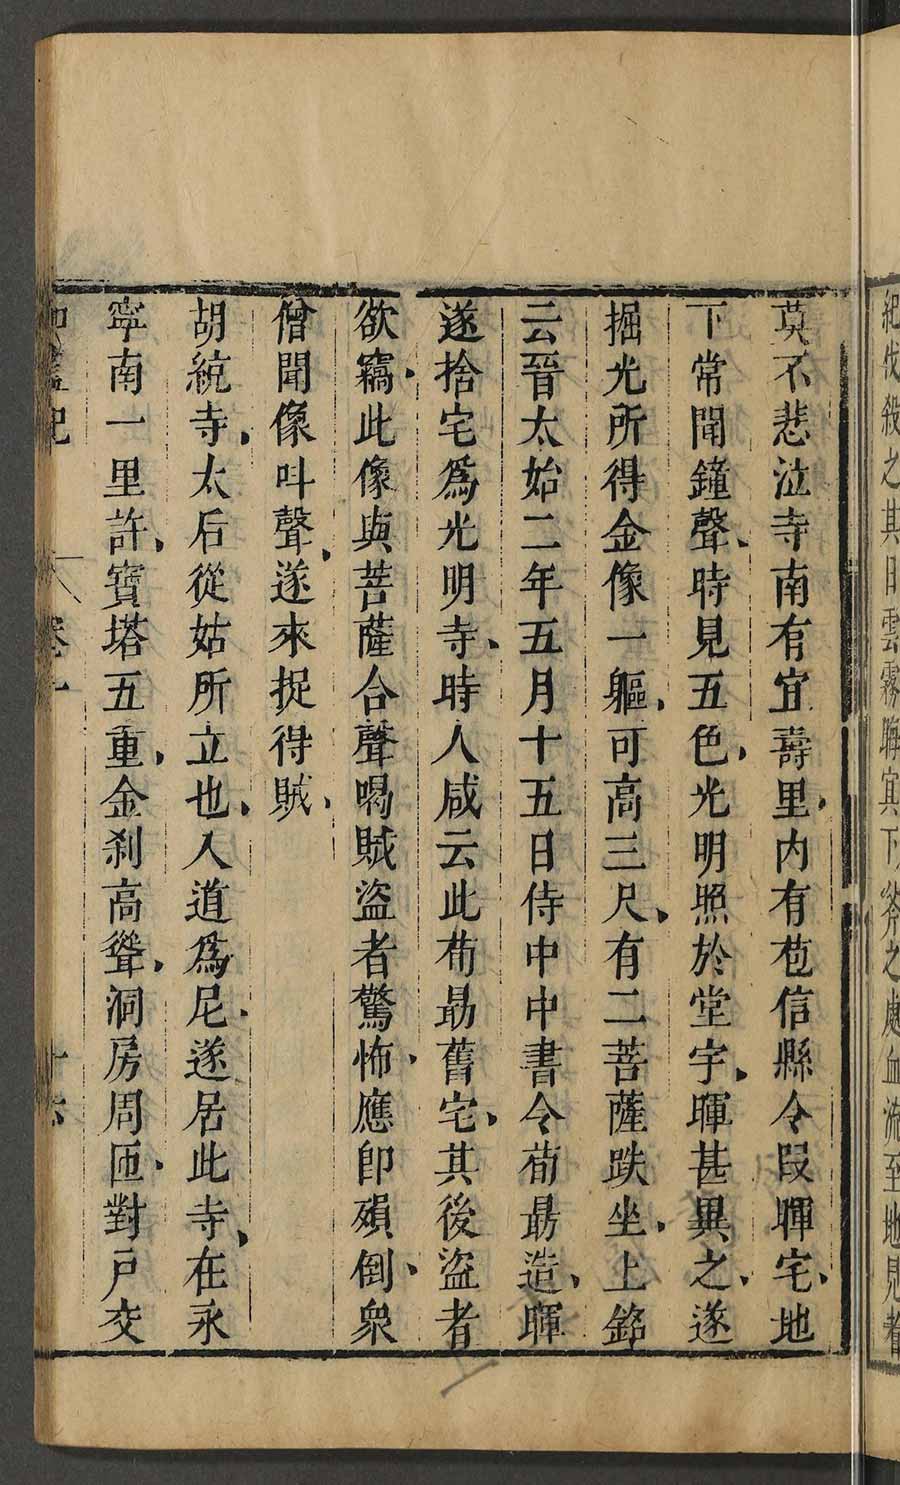 紀伐殺之其日雲霧晦冥下斧之處血流至地見者
莫不悲泣寺南有宜壽里内有苞信縣令段暉宅地
下常聞鐘聲時見五色光明照於堂宇暉甚異之遂
掘光所得金像一軀可高三尺有二菩薩趺坐上銘
云晉太始二年五月十五日侍中中書令荀勗造暉
遂捨宅爲光明寺時人咸云此荀勗舊宅其後盜者
欲竊此像與菩薩合聲喝賊盜者驚怖應即殞倒衆
僧聞像叫聲遂來捉得賊
胡統寺太后從姑所立也入道爲尼遂居此寺在永
寧南一里許寶塔五重金刹高聳洞房周匝對戶交
卷一